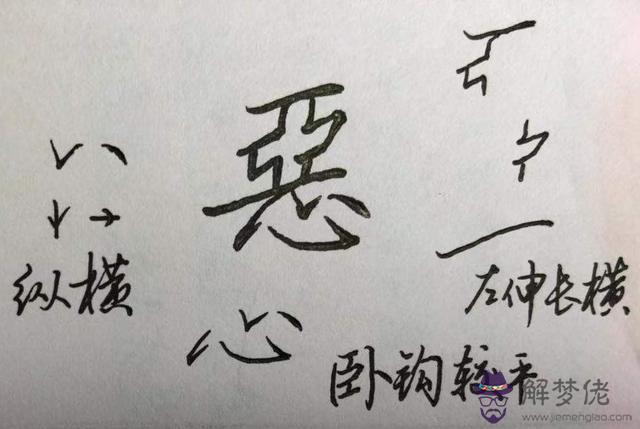 惡
纵横
左伸长横
心
卧钩较平
解梦佬
www.jiemenglao.com